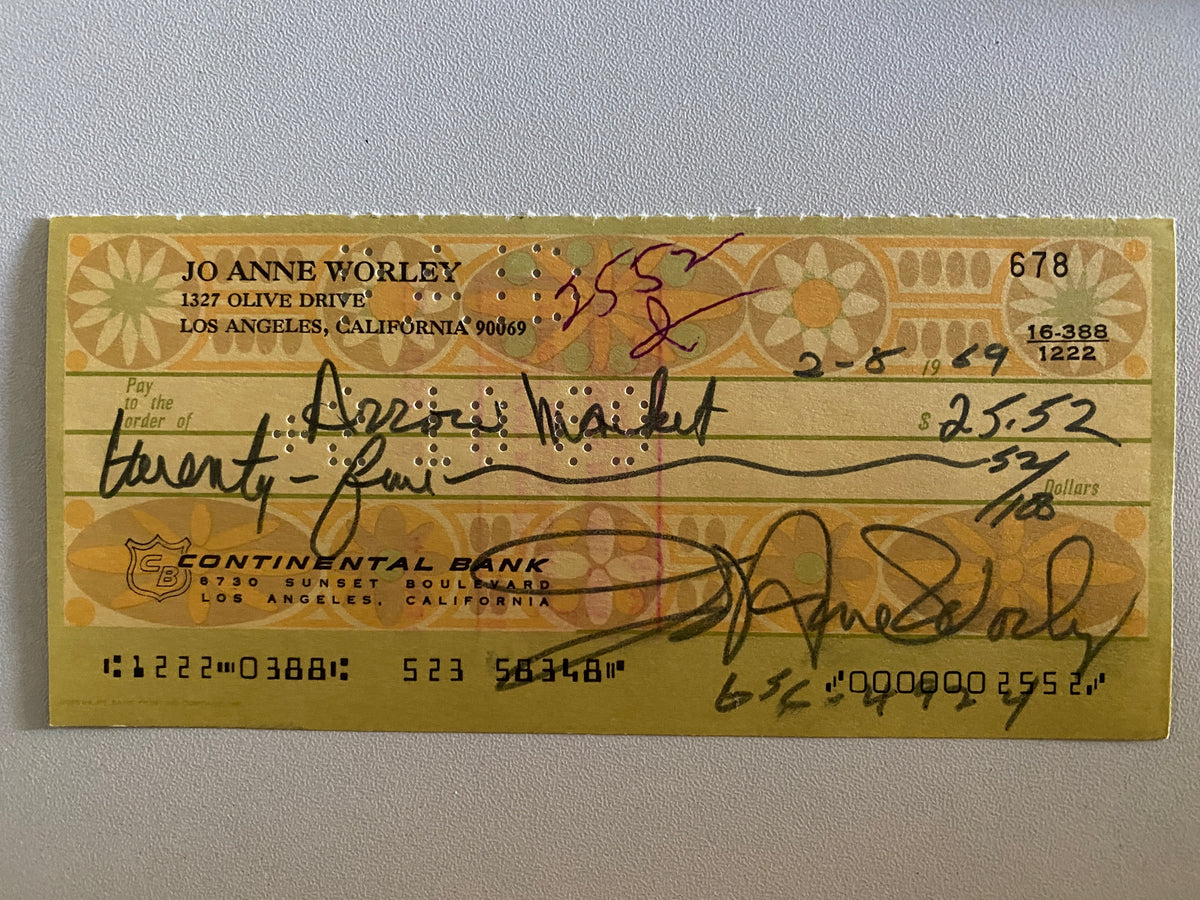 JO ANNE WORLEY
1327 OLIVE DRIVE
LOS ANGELES, CALIFORNIA 90069
2552
678
16-388
1222
2-8 1969
Pay to the order of Arrow Market $ 25.52
twenty-five 52/100 Dollars
CB CONTINENTAL BANK
8730 SUNSET BOULEVARD
LOS ANGELES, CALIFORNIA
Jo Anne Worley
⑆1222⑉0388⑆ 523 58348⑈ ⑇0000002552⑇
656-4924